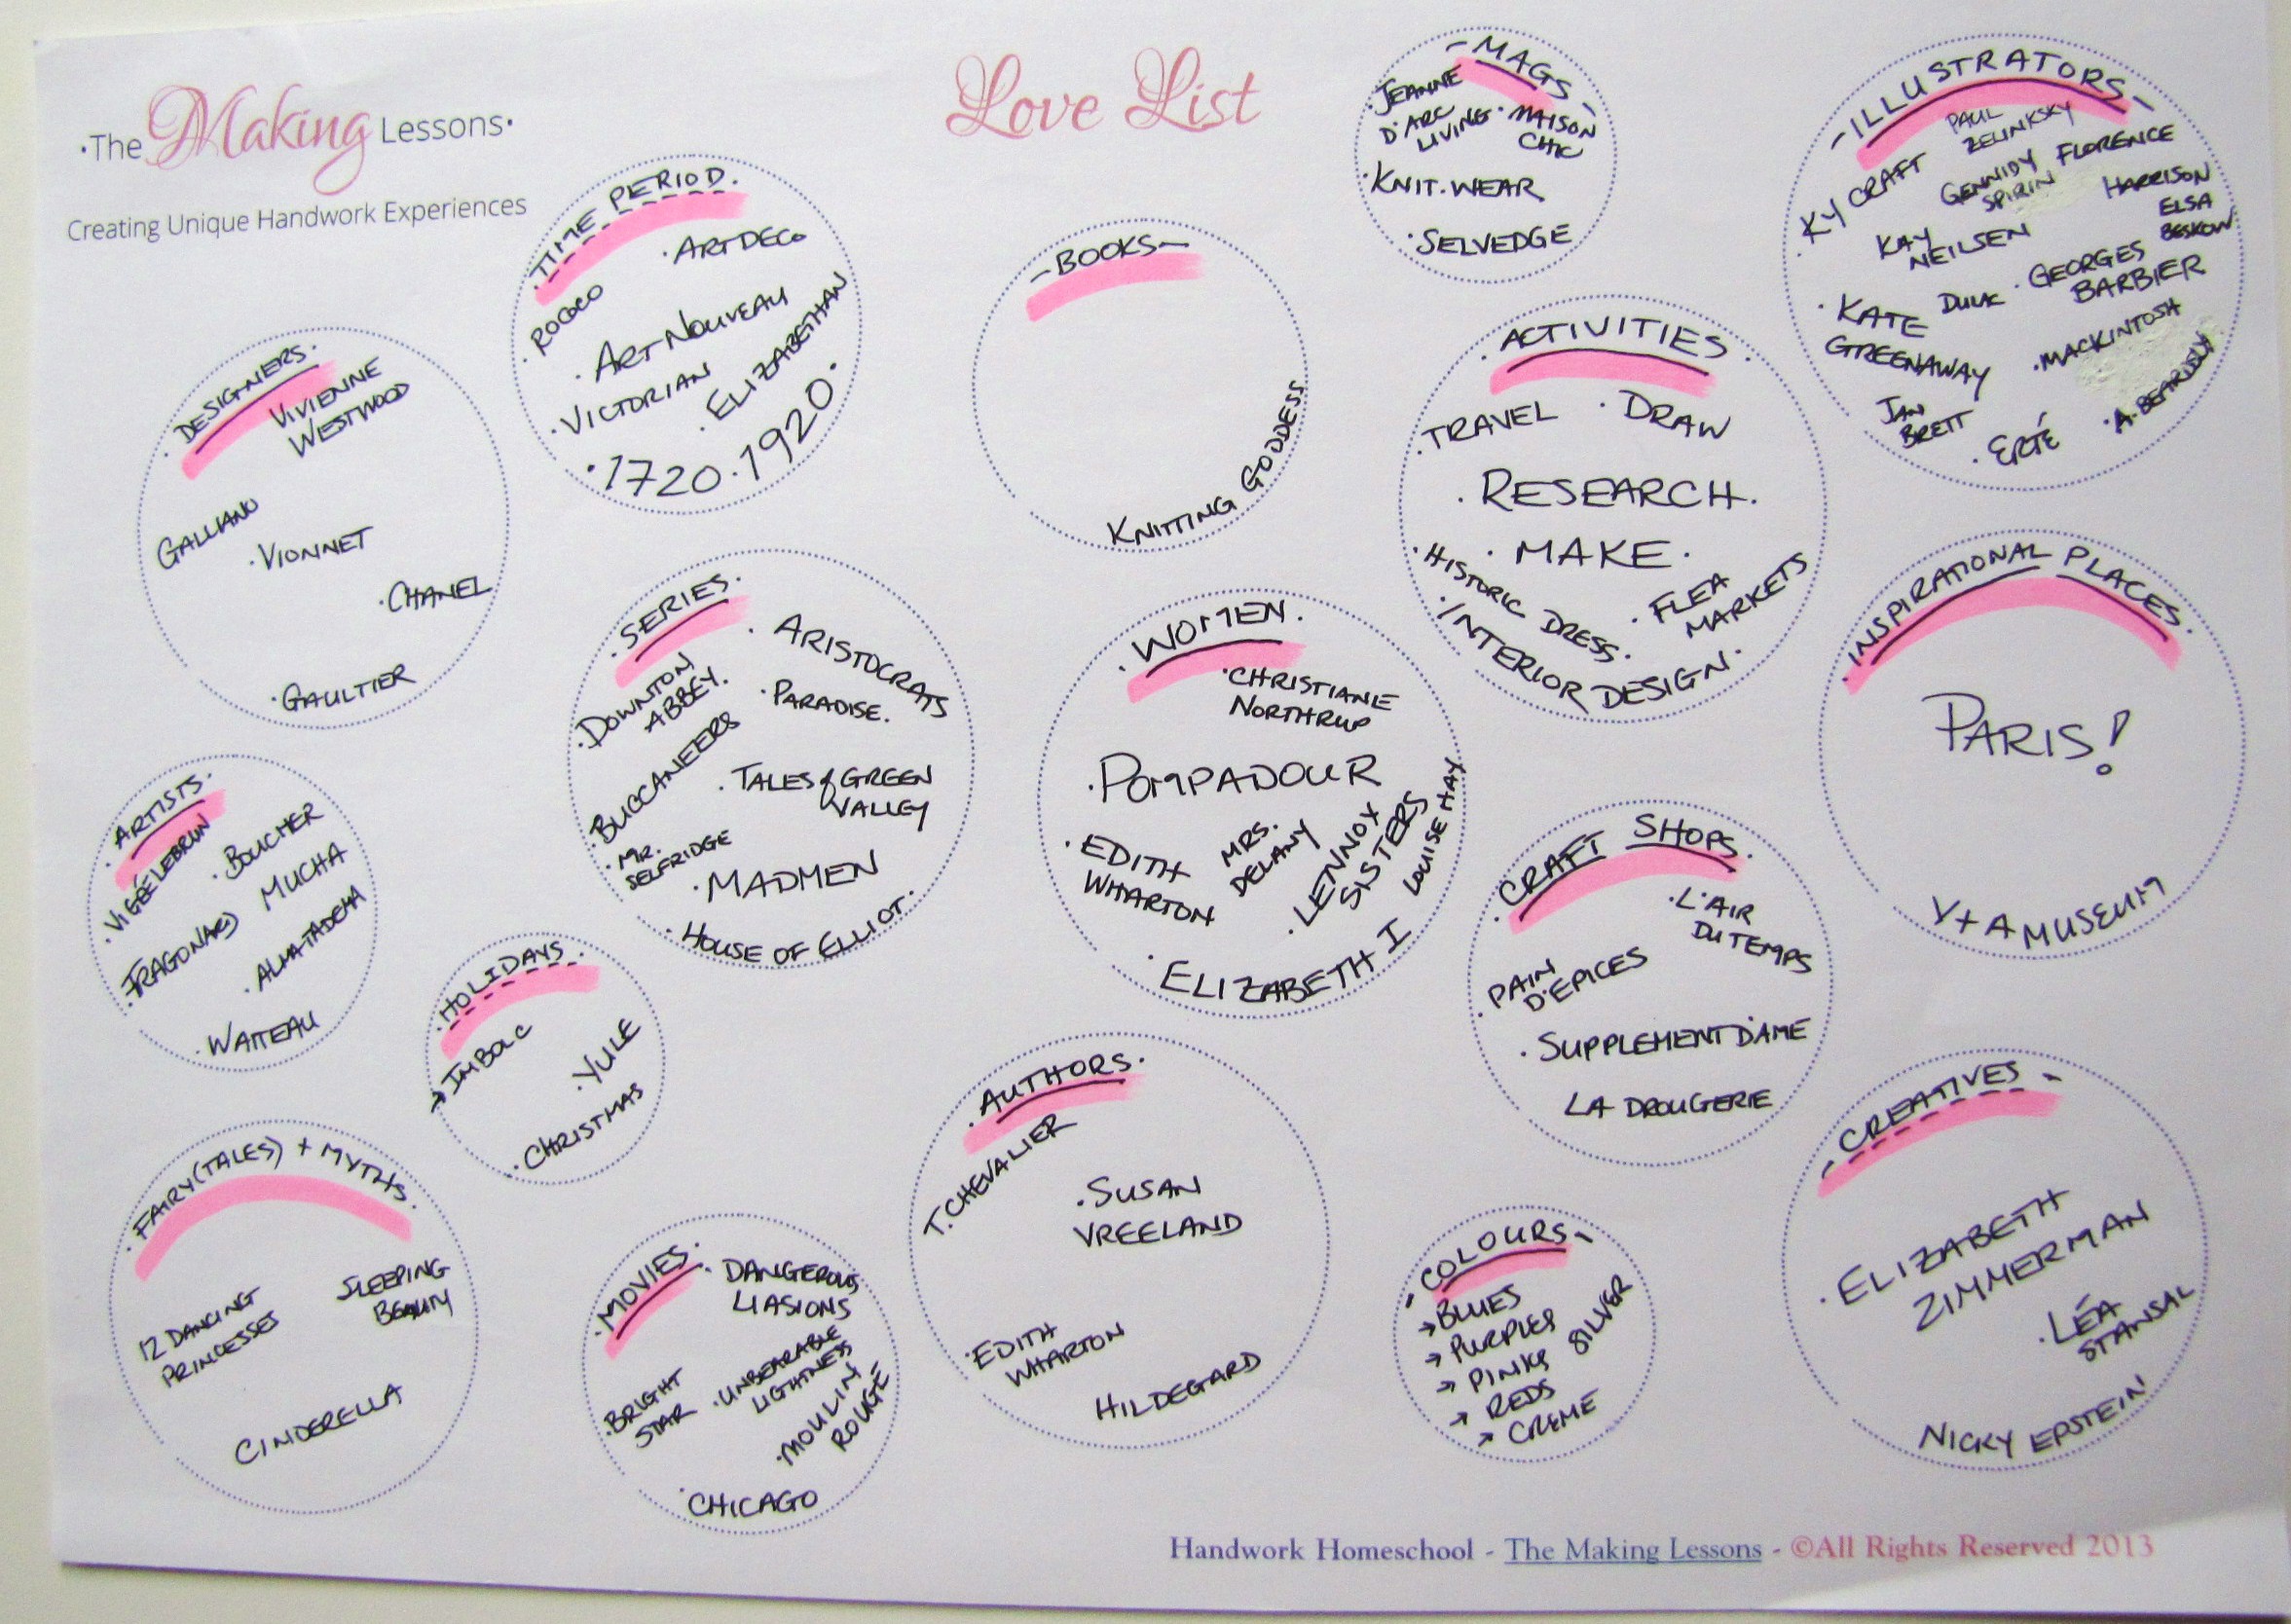 ·The Making Lessons·
Creating Unique Handwork Experiences
Love List
-MAGS-
·JEANNE
D'ARC
LIVING
·MAISON
CHIC
·KNIT.WEAR
·SELVEDGE
-ILLUSTRATORS-
PAUL
ZELINKSKY
·KY CRAFT
GENNIDY
SPIRIN
FLORENCE
HARRISON
ELSA
BESKOW
KAY
NEILSEN
·GEORGES
BARBIER
·KATE
GREENAWAY
DULAC
·MACKINTOSH
JAN
BRETT
·ERTÉ
·A. BEARDSLY
·TIME PERIOD·
·ART DECO
·ROCOCO
·ART NOUVEAU
·VICTORIAN
·ELIZABETHAN
·1720·1920·
-BOOKS-
KNITTING GODDESS
·ACTIVITIES·
·TRAVEL
·DRAW
·RESEARCH·
·MAKE·
·HISTORIC DRESS·
·FLEA
MARKETS
·INTERIOR DESIGN·
·DESIGNERS·
VIVIENNE
WESTWOOD
GALLIANO
·VIONNET
·CHANEL
·GAULTIER
·SERIES·
·ARISTOCRATS
·DOWNTON
ABBEY·
·PARADISE.
·BUCCANEERS
·TALES of GREEN
VALLEY
·MR.
SELFRIDGE
·MADMEN
·HOUSE OF ELLIOT·
·WOMEN·
·CHRISTIANE
NORTHRUP
·POMPADOUR
·EDITH
WHARTON
MRS.
DELANY
·LENNOX
SISTERS
LOUISE HAY
·ELIZABETH I
·INSPIRATIONAL PLACES·
PARIS!
V+A MUSEUM
·ARTISTS·
·VIGÉE LEBRUN
·BOUCHER
MUCHA
·FRAGONARD
·ALMA-TADEMA
·WATTEAU
·HOLIDAYS·
→IMBOLC
·YULE
·CHRISTMAS
·CRAFT SHOPS·
·L'AIR
DU TEMPS
·PAIN
D'EPICES
·SUPPLEMENT D'AME
LA DROUGERIE
·AUTHORS·
T. CHEVALIER
·SUSAN
VREELAND
·EDITH
WHARTON
HILDEGARD
-CREATIVES-
·ELIZABETH
ZIMMERMAN
·LÉA
STANSAL
NICKY EPSTEIN
·FAIRY(TALES) + MYTHS·
12 DANCING
PRINCESSES
SLEEPING
BEAUTY
CINDERELLA
·MOVIES·
·DANGEROUS
LIASIONS
·BRIGHT
STAR
·UNBEARABLE
LIGHTNESS
·MOULIN
ROUGE
·CHICAGO
-COLOURS-
→BLUES
→PURPLES
→PINKS
→REDS
→CREME
SILVER
Handwork Homeschool - The Making Lessons - ©All Rights Reserved 2013